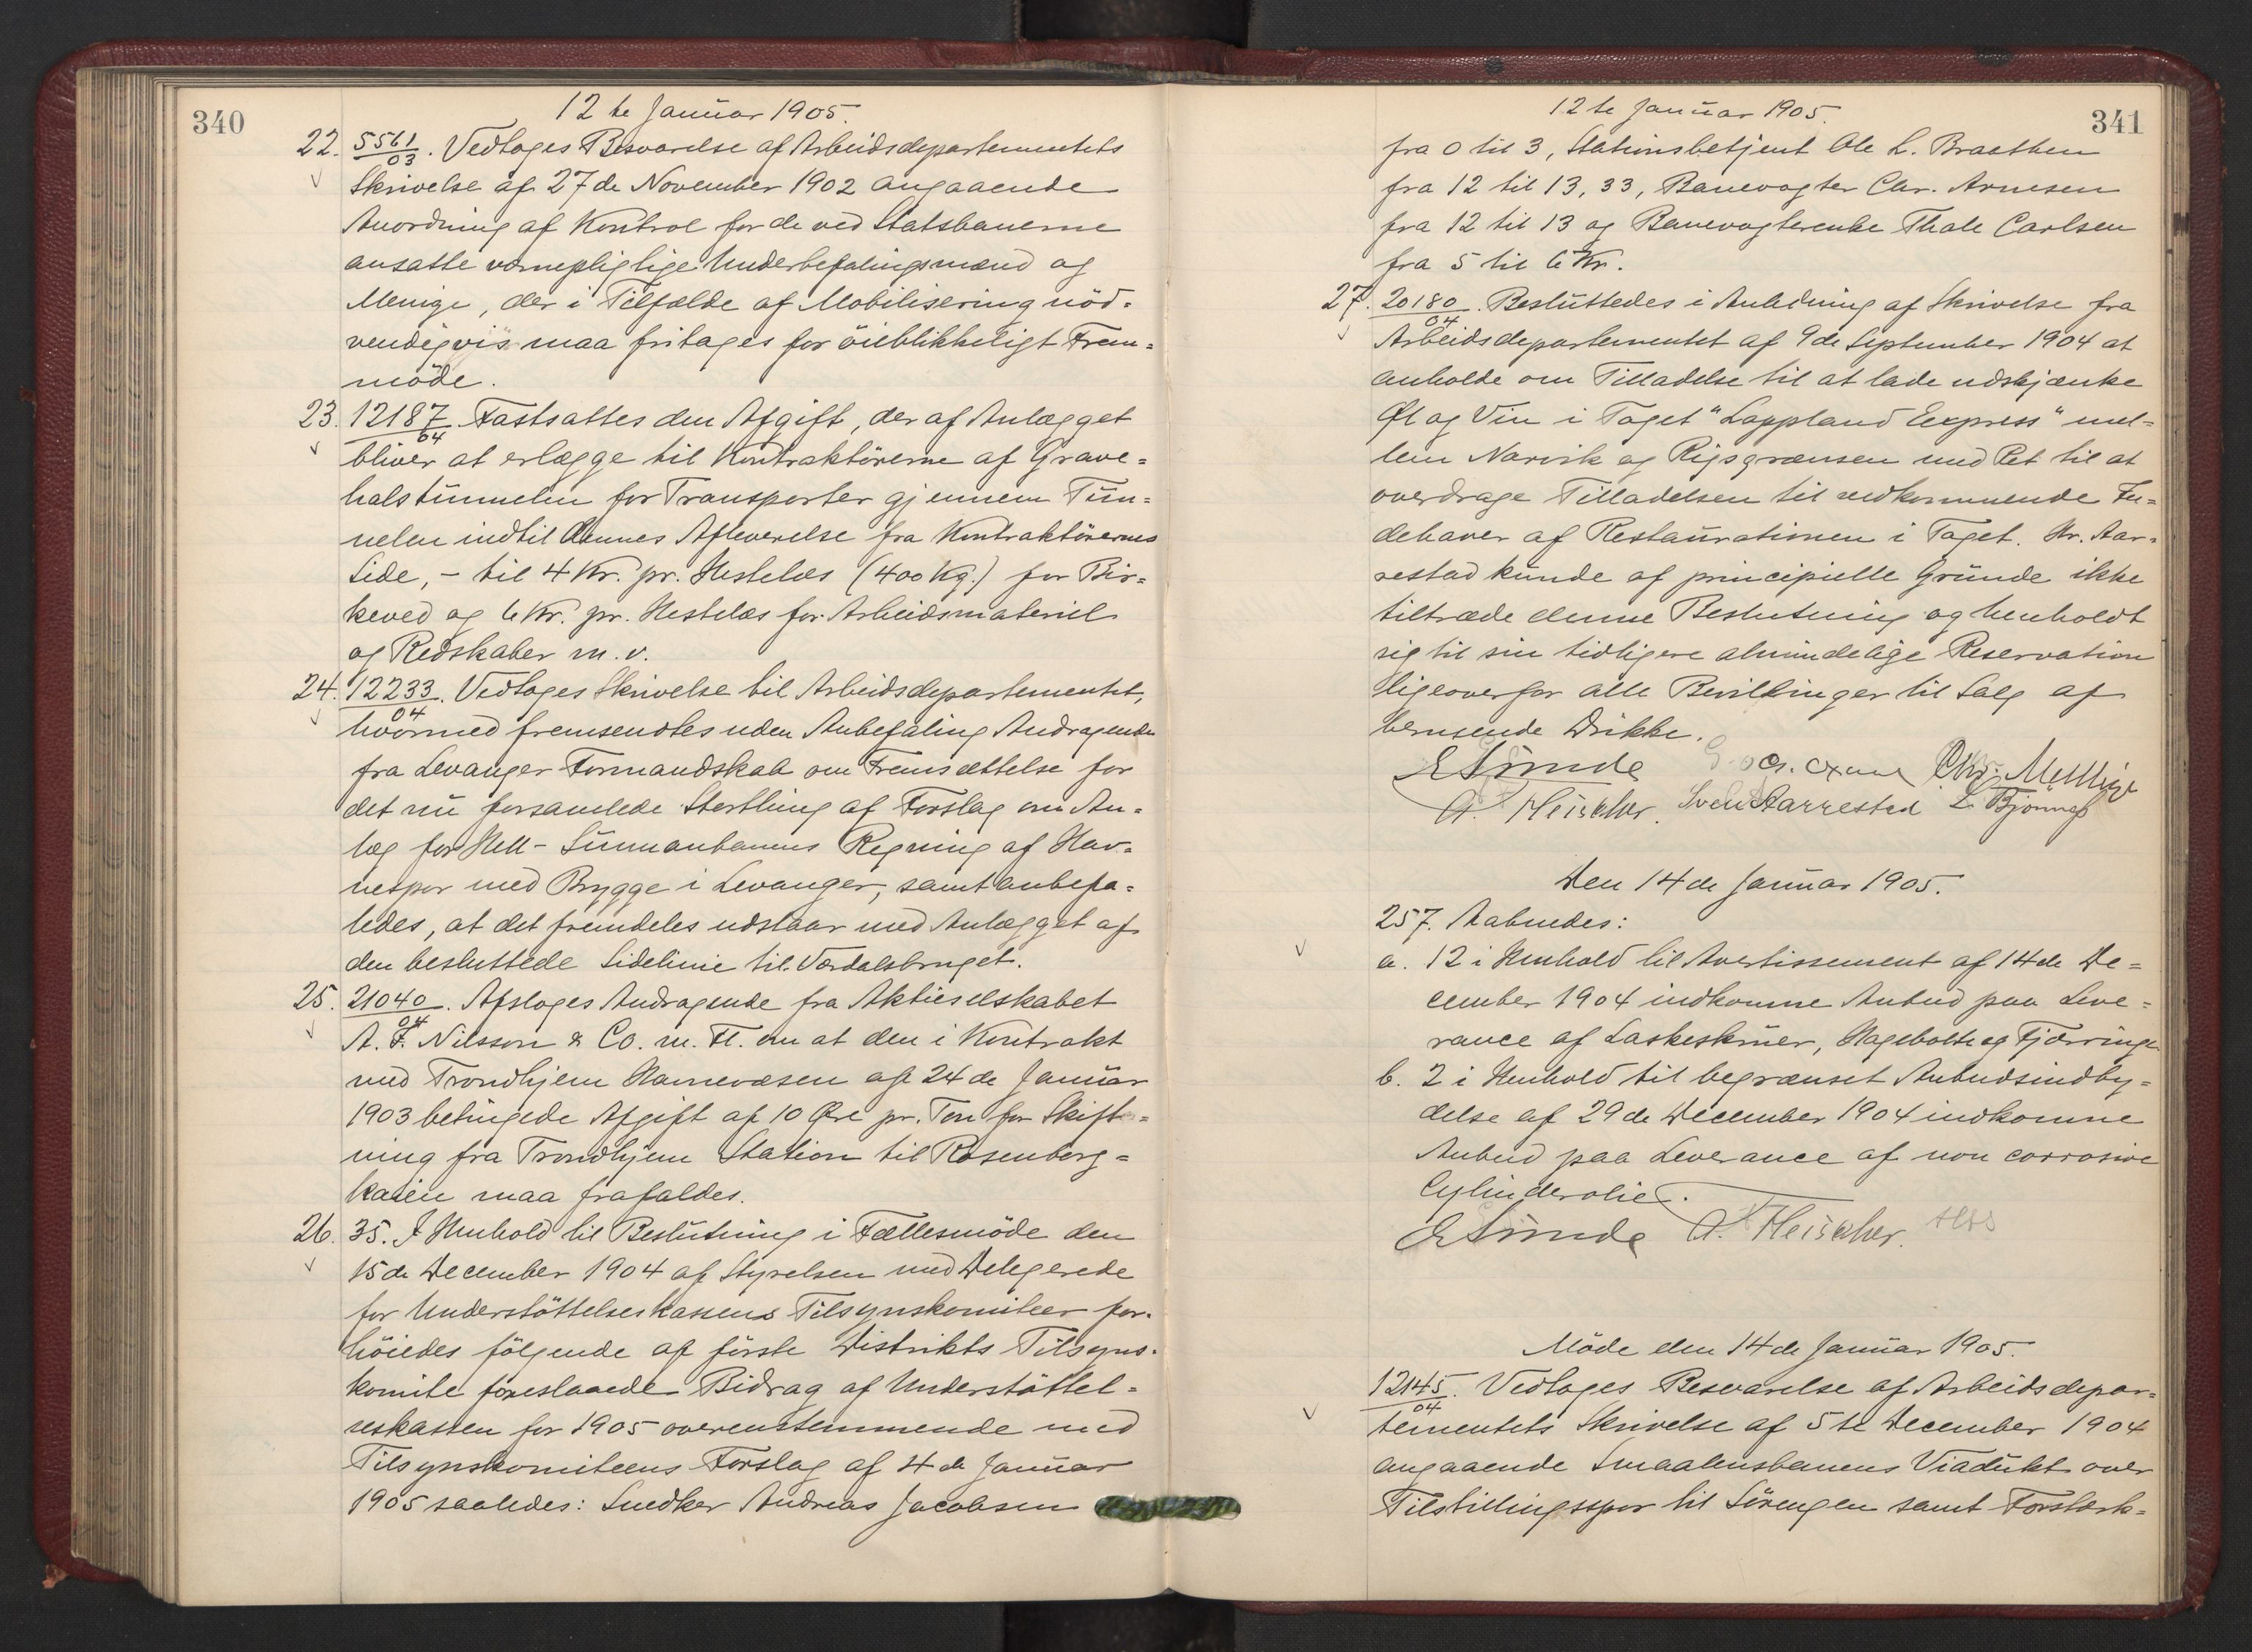 340
12te Januar 1905.
22. 5561/03. Vedtoges Besvarelse af Arbeidsdepartementets
Skrivelse af 27de November 1902 angaaende
Anordning af Kontrol for de ved Statsbanerne
ansatte værnepligtige Underbefalingsmænd og
Menige, der i Tilfælde af Mobilisering nöd=
vendigvis maa fritages for öieblikkeligt Frem=
möde.
23. 12187/04. Fastsattes den Afgift, der af Anlægget
bliver at erlægge til Kontraktörerne af Grave=
halstunnelen for Transporter gjennem Tun=
nelen indtil dennes Afleverelse fra Kontraktörernes
Side, - til 4 Kr. pr. Hestelæs (400 Kg.) for Bir=
keved og 6 Kr. pr. Hestelæs for Arbeidsmateriel
og Redskaber m.v.
24. 12233/04. Vedtoges Skrivelse til Arbeidsdepartementet,
hvormed fremsendtes uden Anbefaling Andragende
fra Levanger Formandskab om Fremsættelse for
det nu forsamlede Storthing af Forslag om An=
læg for Hell-Sunnanbanens Regning af Hav=
nespor med Brygge i Levanger, samt anbefa=
ledes, at det fremdeles udstaar med Anlægget af
den besluttede Sidelinie til Værdalsbruget.
25. 21040/04. Afsloges Andragende fra Aktieselskabet
A. F. Nilsson & Co. m. Fl. om at den i Kontrakt
med Trondhjem Havnevæsen af 24de Januar
1903 betingede Afgift af 10 Øre pr. Ton for Skift=
ning fra Trondhjem Station til Rosenborg=
kaien maa frafaldes.
26. 35. I Henhold til Beslutning i Fællesmöde den
15de December 1904 af Styrelsen med Delegerede
for Understöttelseskassens Tilsynskomiteer for=
höiedes fölgende af förste Distrikts Tilsyns=
komite foreslaaede Bidrag af Understöttel=
seskassen for 1905 overenstemmende med
Tilsynskomiteens Forslag af 4de Januar
1905 saaledes: Snedker Andreas Jacobsen
12te Januar 1905.
341
fra 0 til 3, Stationsbetjent Ole L. Braathen
fra 12 til 13,33, Banevogter Chr. Arnesen
fra 12 til 13 og Banevogterenke Thale Carlsen
fra 5 til 6 Kr.
27. 20180/04. Besluttedes i Anledning af Skrivelse fra
Arbeidsdepartementet af 9de September 1904 at
anholde om Tilladelse til at lade udskjænke
Øl og Vin i Toget "Lappland Express" mel=
lem Narvik og Rigsgrænsen med Ret til at
overdrage Tilladelsen til vedkommende In=
dehaver af Restaurationen i Toget. Hr. Aar=
restad kunde af principielle Grunde ikke
tiltræde denne Beslutning og henholdt
sig til sin tidligere almindelige Reservation
ligeoverfor alle Bevillinger til Salg af
berusende Drikke.
E Sunde Chr.
A. Fleischer. Sven Aarrestad L. Bjønnes
Den 14de Januar 1905.
257. Aabnedes:
a. 12 i Henhold til Avertissement af 14de De=
cember 1904 indkomne Anbud paa Leve=
rance af Laskeskruer, Hagebolte og Fjærringe
b. 2 i Henhold til begrænset Anbudsindby=
delse af 29de December 1904 indkomne
Anbud paa Leverance af non corrosive
Cylinderolie.
E Sunde A. Fleischer.
Möde den 14de Januar 1905.
12145/04. Vedtoges Besvarelse af Arbeidsdepar=
tementets Skrivelse af 5te December 1904
angaaende Smaalensbanens Viadukt over
Tilstillingsspor til Sörengen samt Forstærk=